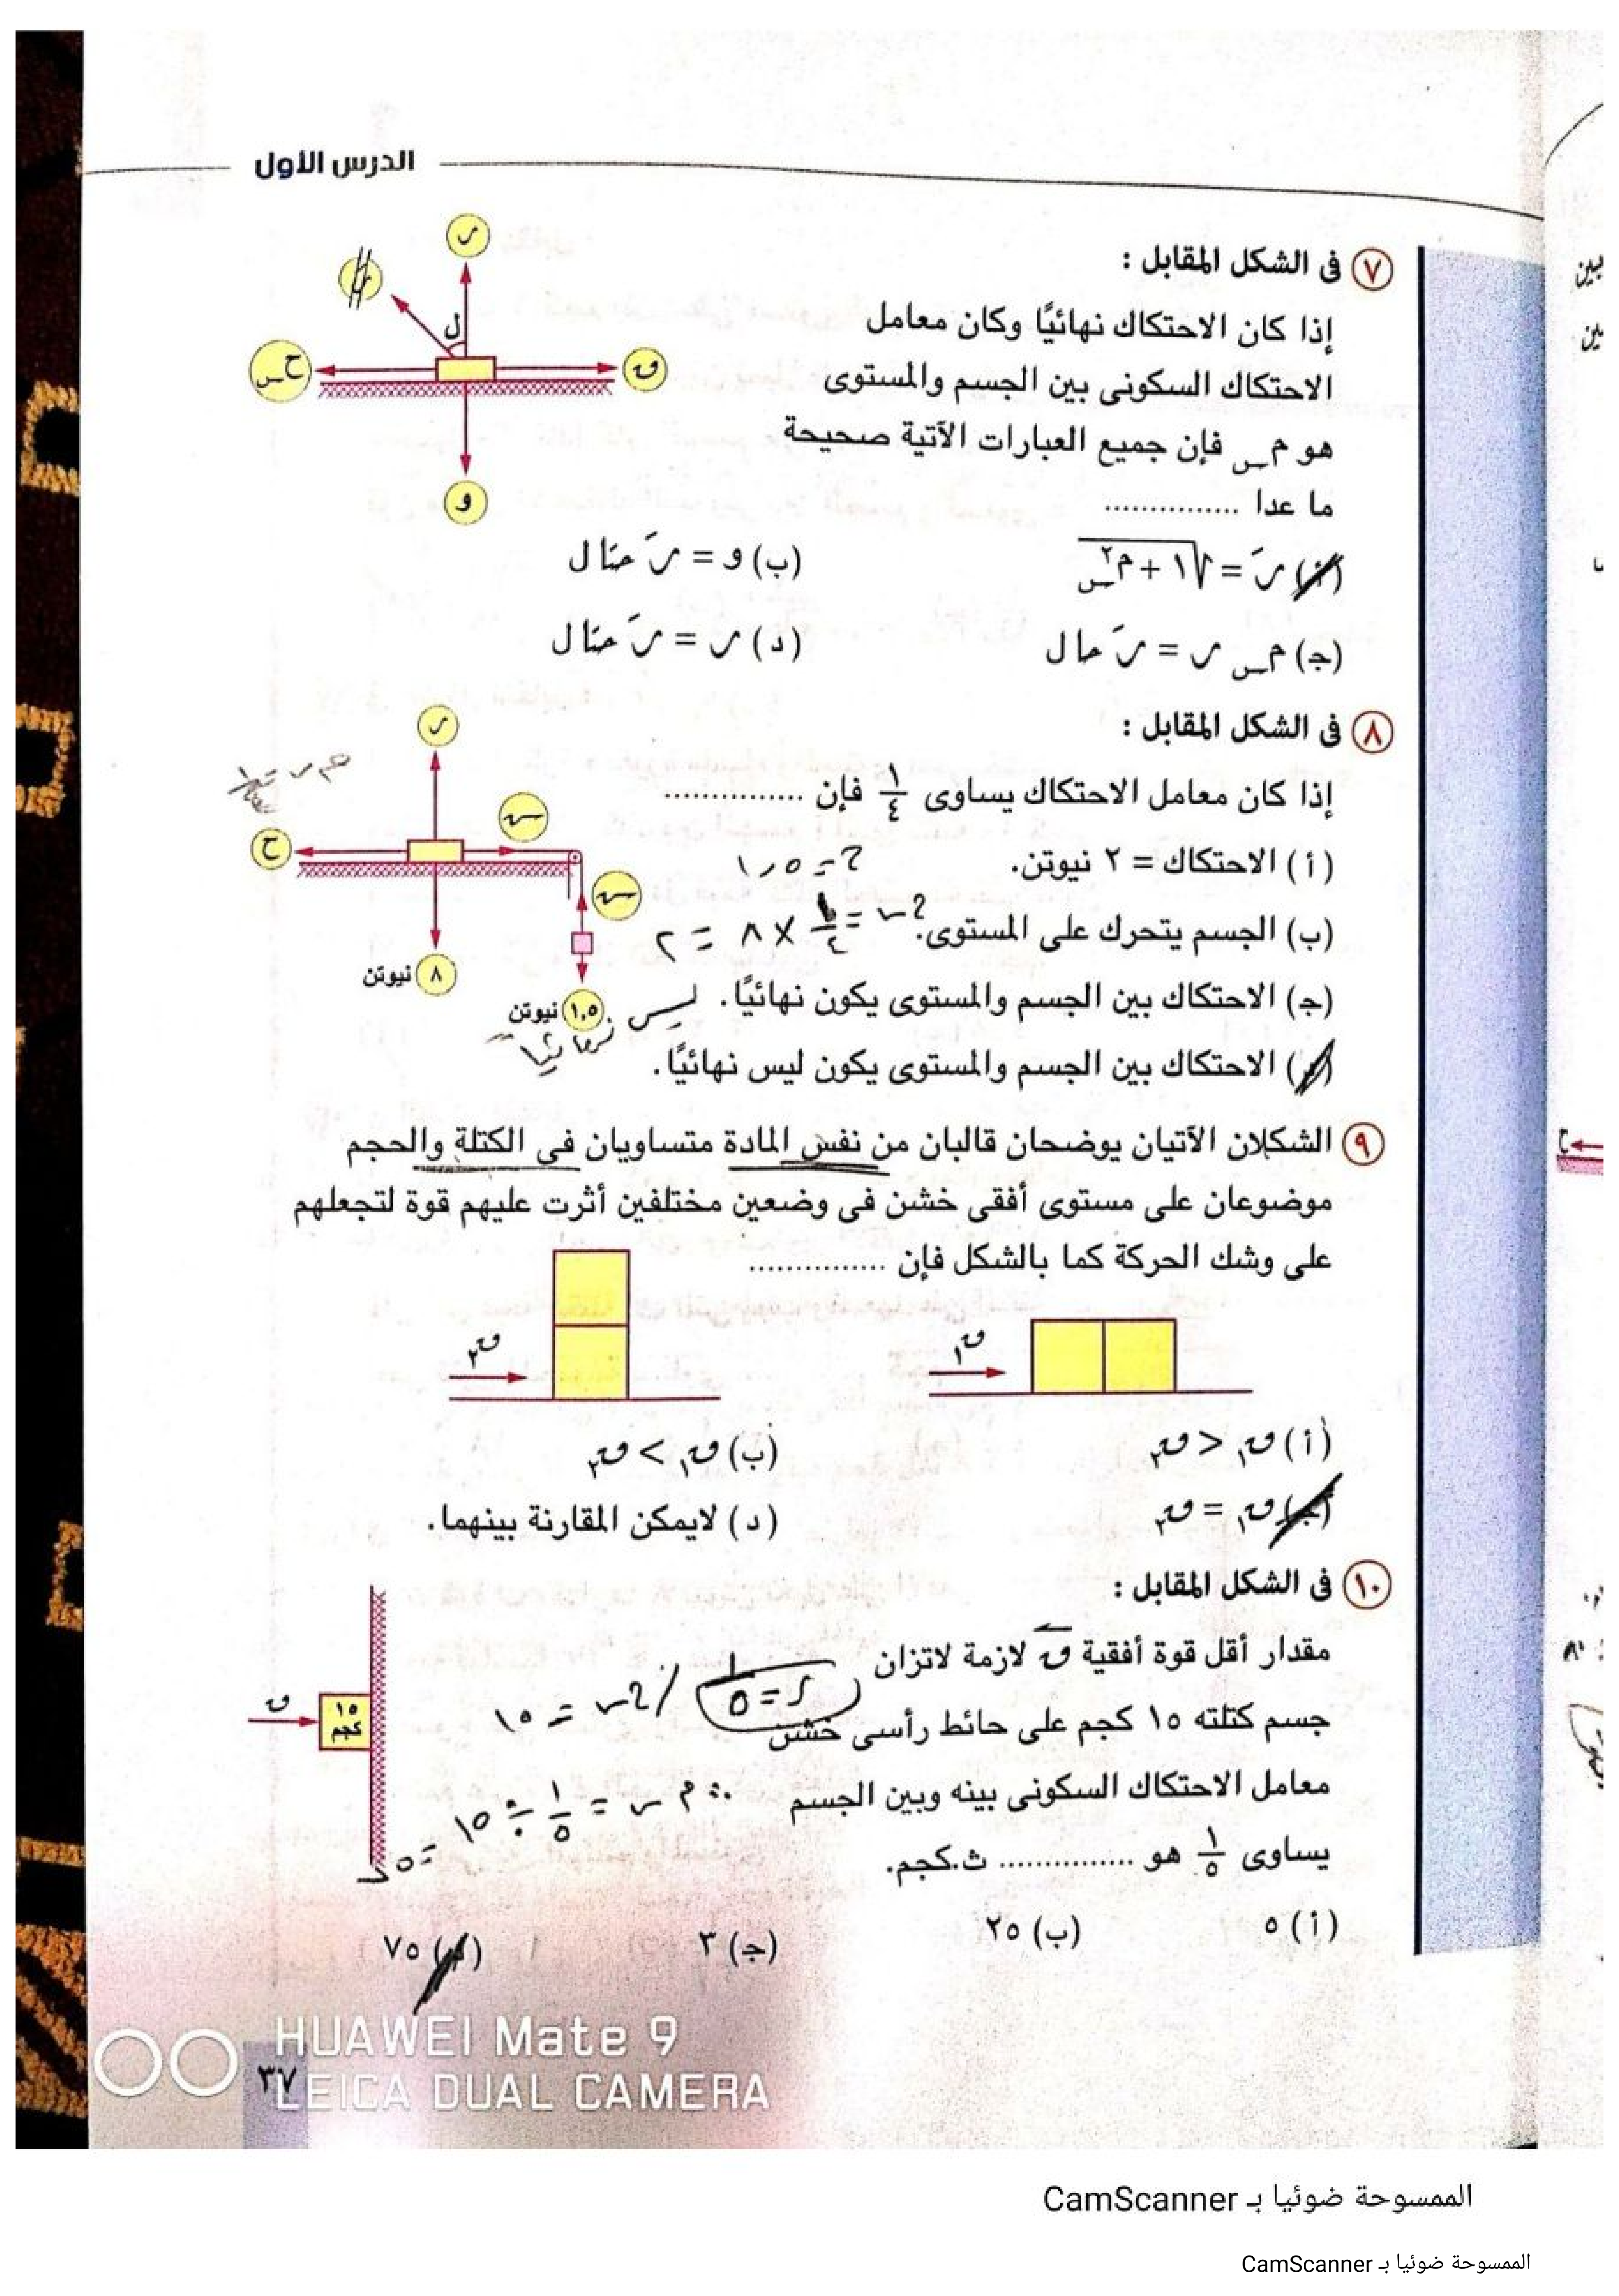 الدرس الأول
٧ فى الشكل المقابل :
إذا كان الاحتكاك نهائيًا وكان معامل
الاحتكاك السكونى بين الجسم والمستوى
هو م س فإن جميع العبارات الآتية صحيحة
ما عدا ...............
(أ) رَ = √١ + م٢ س
(ب) و = رَ حتا ل
(جـ) م س ر = رَ حا ل
(د) ر = رَ حتا ل
ر
ل
ح س
ق
و
٨ فى الشكل المقابل :
إذا كان معامل الاحتكاك يساوى ١/٤ فإن ...............
(أ) الاحتكاك = ٢ نيوتن.
ح = ١,٥
(ب) الجسم يتحرك على المستوى.
م ر = ١/٤ × ٨ = ٢
(جـ) الاحتكاك بين الجسم والمستوى يكون نهائيًا.
ليس نهائياً
(د) الاحتكاك بين الجسم والمستوى يكون ليس نهائيًا.
ر
ش
ح
ش
٨ نيوتن
١,٥ نيوتن
٩ الشكلان الأتيان يوضحان قالبان من نفس المادة متساويان فى الكتلة والحجم
موضوعان على مستوى أفقى خشن فى وضعين مختلفين أثرت عليهم قوة لتجعلهم
على وشك الحركة كما بالشكل فإن ...............
ق١
ق٢
(أ) ق١ > ق٢
(ب) ق١ < ق٢
(جـ) ق١ = ق٢
(د) لايمكن المقارنة بينهما.
١٠ فى الشكل المقابل :
مقدار أقل قوة أفقية ق لازمة لاتزان
جسم كتلته ١٥ كجم على حائط رأسى خشن
معامل الاحتكاك السكونى بينه وبين الجسم
يساوى ١/٥ هو ............... ث.كجم.
م ر = ١٥
∴ م ر = ١/٥ ÷ ١٥ =
ق
١٥
كجم
(أ) ٥
(ب) ٢٥
(جـ) ٣
(د) ٧٥
HUAWEI Mate 9
LEICA DUAL CAMERA
٣٧
الممسوحة ضوئيا بـ CamScanner
الممسوحة ضوئيا بـ CamScanner